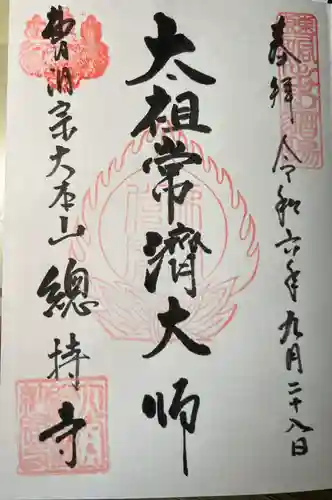 奉拝 令和六年九月二十八日
太祖常濟大師
曹洞宗大本山 總持寺